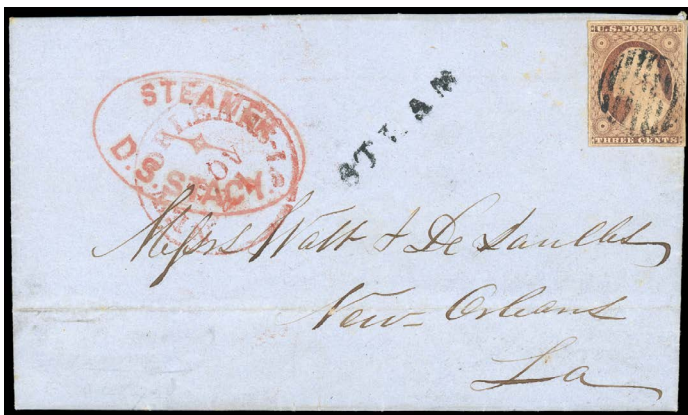 U.S. POSTAGE
THREE CENTS
STEAMER
D.S. STACY.
STEAM
Messrs Watt & De Saulles
New-Orleans
La